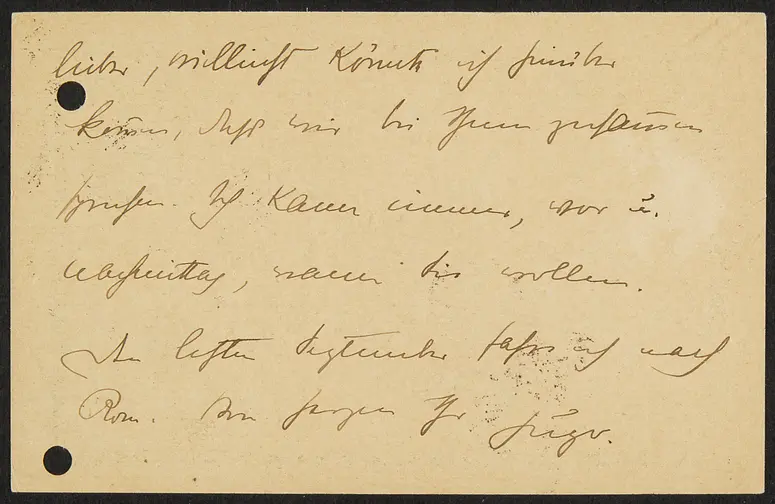 lieber, vielleicht könnte ich hinüber
kommen, daß wir bei Ihnen zuhausen
sprechen. Ich kann immer, vor u.
Nachmittag, wann Sie wollen.
Den letzten September fahre ich nach
Rom. Von Herzen Ihr Hugo.